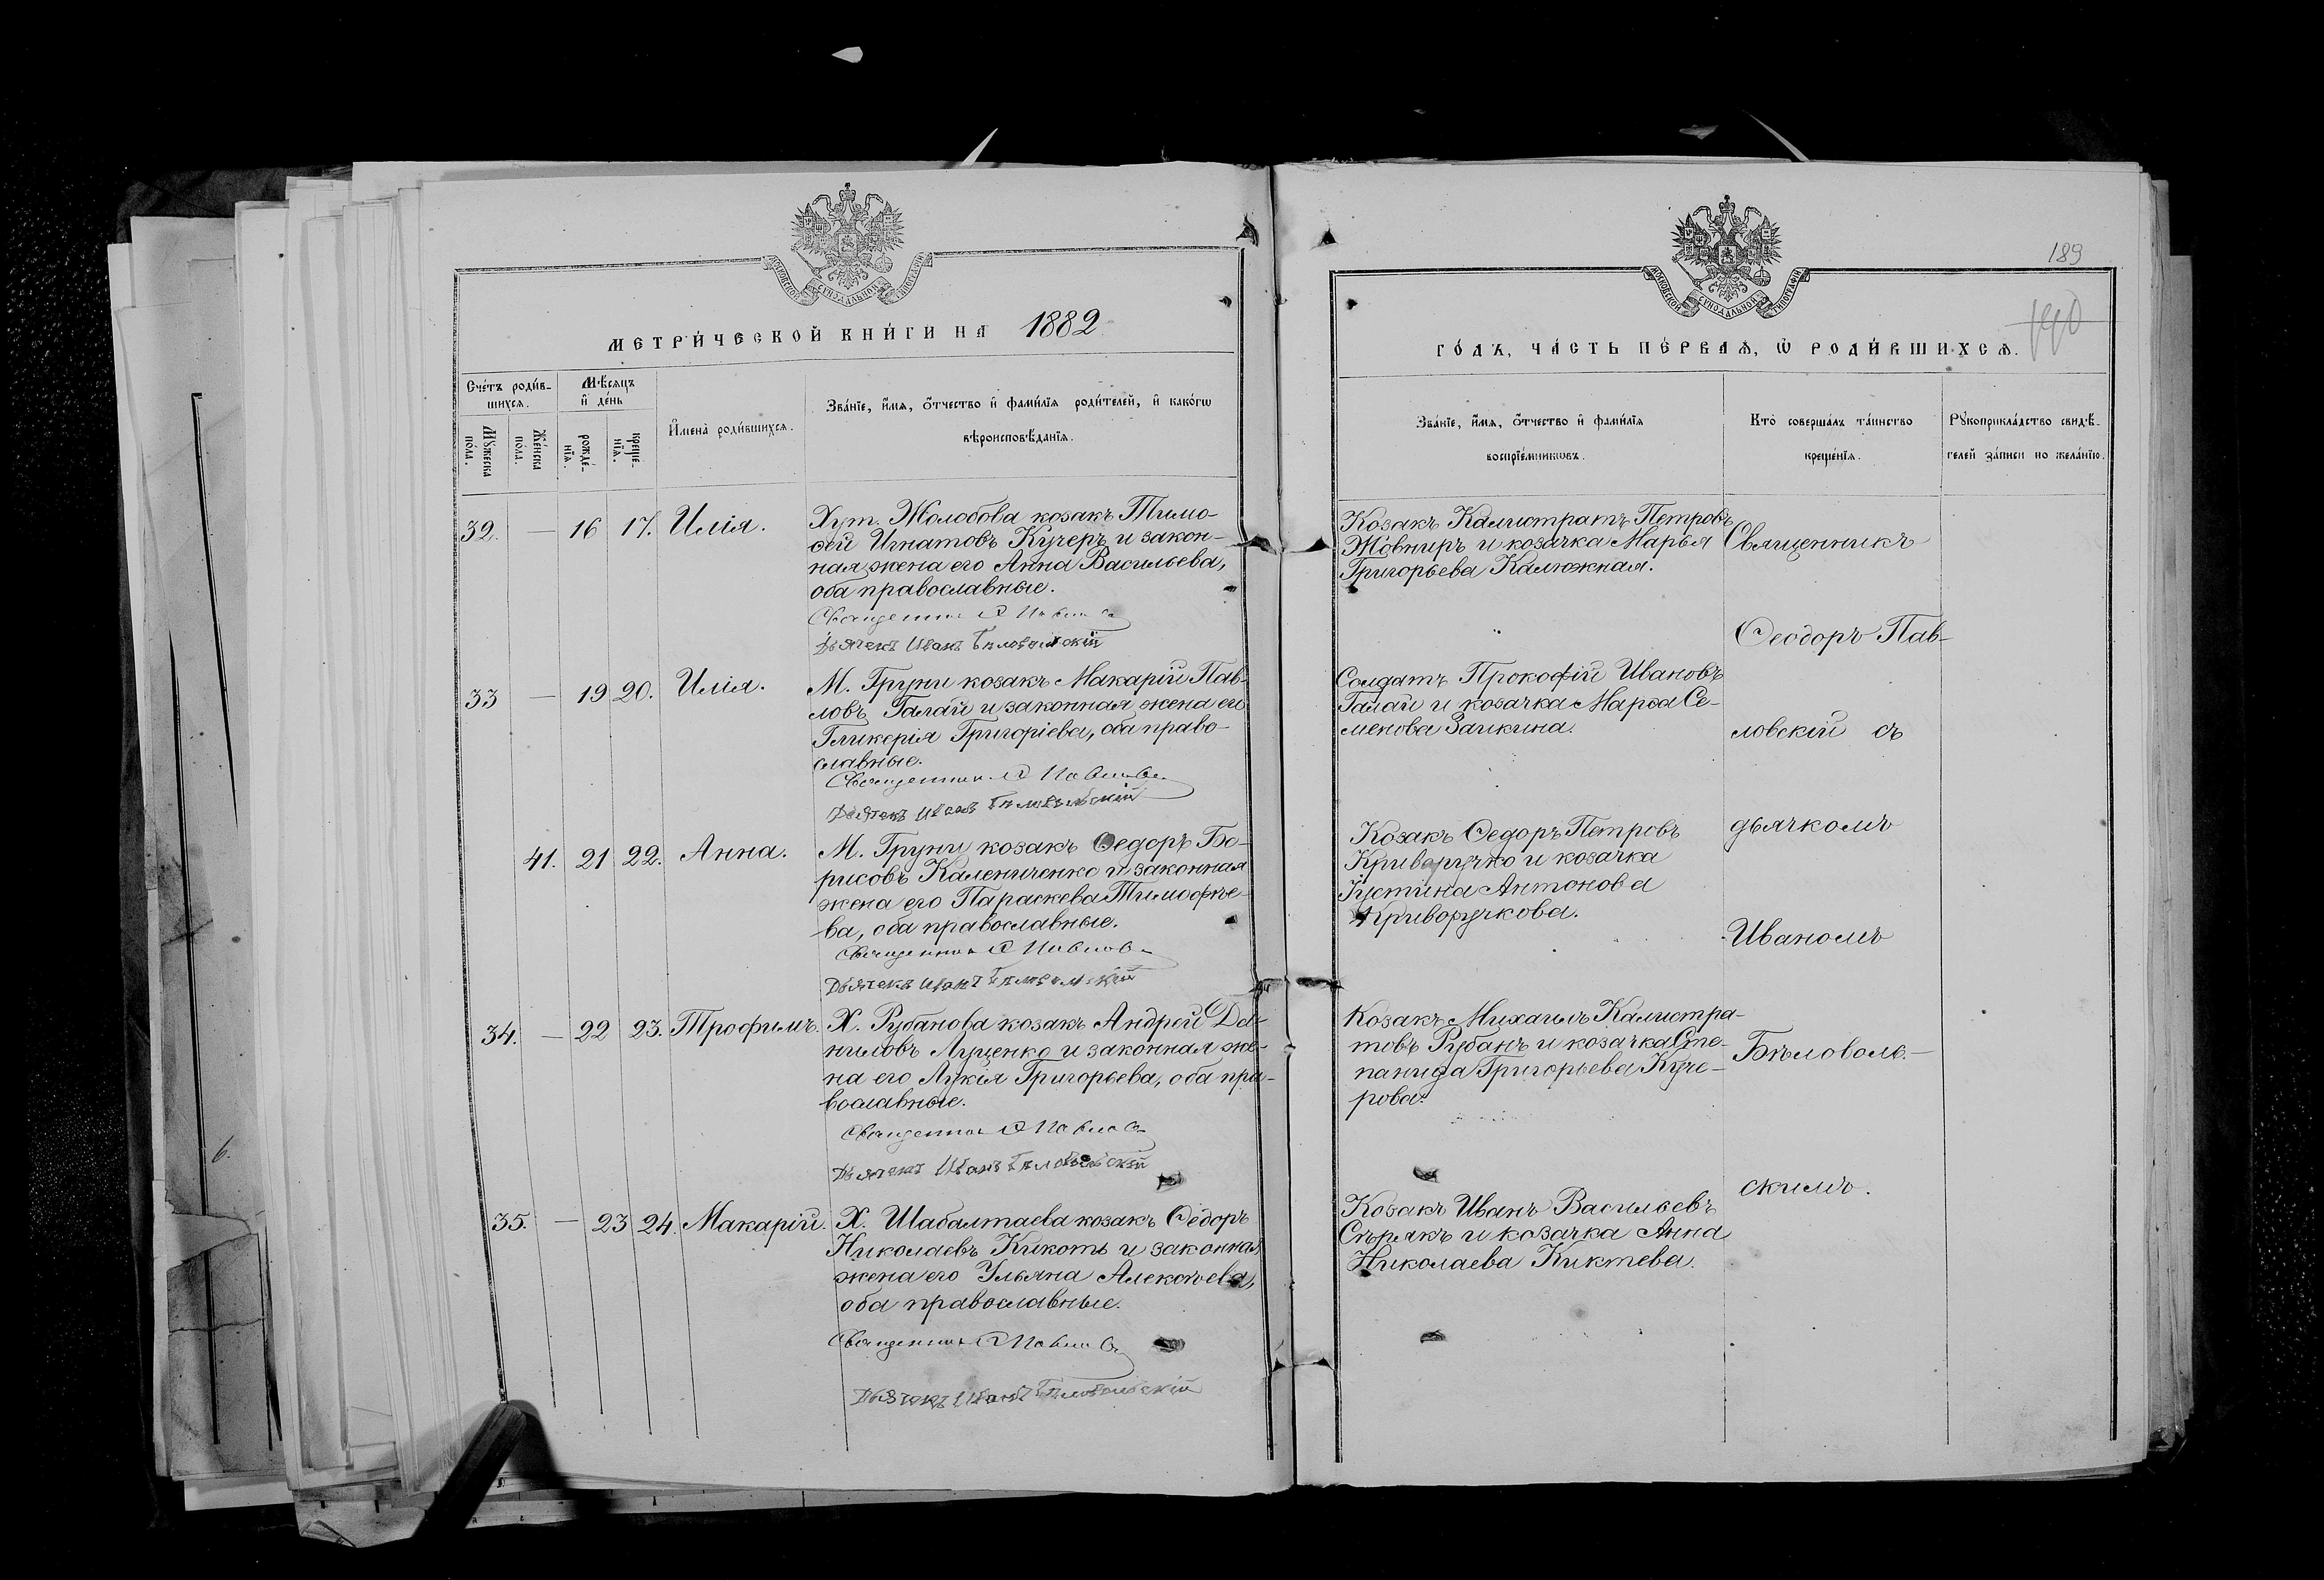 МОСКОВСКОЙ СѴНОДАЛЬНОЙ ТИПОГРАФІИ
МЕТРИ́ЧЕСКОЙ КНИ́ГИ НА 1882
Сче́тъ роди́в-
шихсѧ.
Мѣ́сѧцъ
и҆ де́нь
И҆мена̀ роди́вшихсѧ.
Зва́нїе, и҆́мѧ, ѻ҆́тчество и҆ фами́лїѧ роди́телей, и҆ како́гѡ
вѣроисповѣ́данїѧ.
Мꙋ́жеска
по́ла.
Же́нска
по́ла.
рожде́-
нїѧ.
креще́-
нїѧ.
32. — 16 17. Илія. Хут. Жолобова козакъ Тимо-
ѳей Игнатовъ Кучеръ и закон-
ная жена его Анна Васильева,
оба православные.
Священник Ѳ Павлов
Дьячекъ Иванъ Бѣловольскій
33 — 19 20. Илія. М. Груни козакъ Макарій Пав-
ловъ Галай и законная жена его
Гликерія Григоріева, оба право-
славные.
Священник Ѳ Павлов
Дьячекъ Иванъ Бѣловольскій
41. 21 22. Анна. М. Груни козакъ Ѳедоръ Бо-
рисовъ Калениченко и законная
жена его Параскева Тимофѣе-
ва, оба православные.
Священник Ѳ Павлов
Дьячекъ Иванъ Бѣловольскій
34. — 22 23. Трофимъ. Х. Рубанова козакъ Андрей Да-
ниловъ Луценко и законная же-
на его Лукія Григорьева, оба пра-
вославные.
Священник Ѳ Павлов
Дьячекъ Иванъ Бѣловольскій
35. — 23 24. Макарій. Х. Шабалтаева козакъ Ѳедоръ
Николаевъ Кикоть и законная
жена его Ульяна Алексѣева,
оба православные.
Священник Ѳ Павлов
Дьячекъ Иванъ Бѣловольскій
189
МОСКОВСКОЙ СѴНОДАЛЬНОЙ ТИПОГРАФІИ
ГО́ДЪ, ЧА́СТЬ ПЕ́РВАѦ, Ѡ҆ РОДИ́ВШИХСѦ.
Зва́нїе, и҆́мѧ, ѻ҆́тчество и҆ фами́лїѧ
воспрїе́мникѡвъ.
Кто̀ соверша́лъ та́инство
креще́нїѧ.
Рꙋкоприкла́дство свидѣ́-
телей за́писи по жела́нїю.
Козакъ Калистратъ Петровъ
Жовниръ и козачка Марья
Григорьева Калюжная.
Солдатъ Прокофій Ивановъ
Галай и козачка Марѳа Се-
менова Заикина.
Козакъ Ѳедоръ Петровъ
Криворучко и козачка
Іустина Антонова
Криворучкова.
Козакъ Михаилъ Калистра-
товъ Рубанъ и козачка Сте-
панида Григорьева Куче-
рова.
Козакъ Иванъ Васильевъ
Сѣрякъ и козачка Анна
Николаева Киктева.
Священникъ
Ѳеодоръ Пав-
ловскій съ
дьячкомъ
Иваномъ
Бѣловоль-
скимъ.